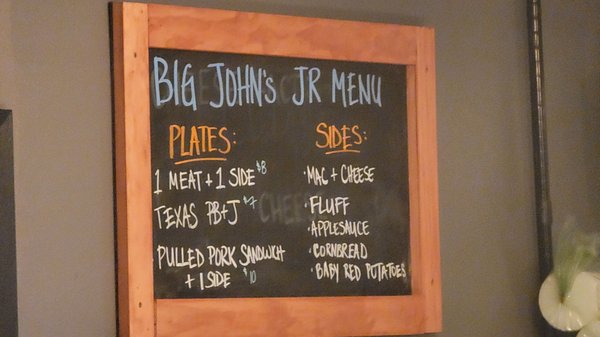 BIG JOHN'S JR MENU
PLATES:
1 MEAT + 1 SIDE $8
TEXAS PB+J $7
PULLED PORK SANDWICH
+ 1 SIDE $10
SIDES:
· MAC + CHEESE
· FLUFF
· APPLESAUCE
· CORNBREAD
· BABY RED POTATOES